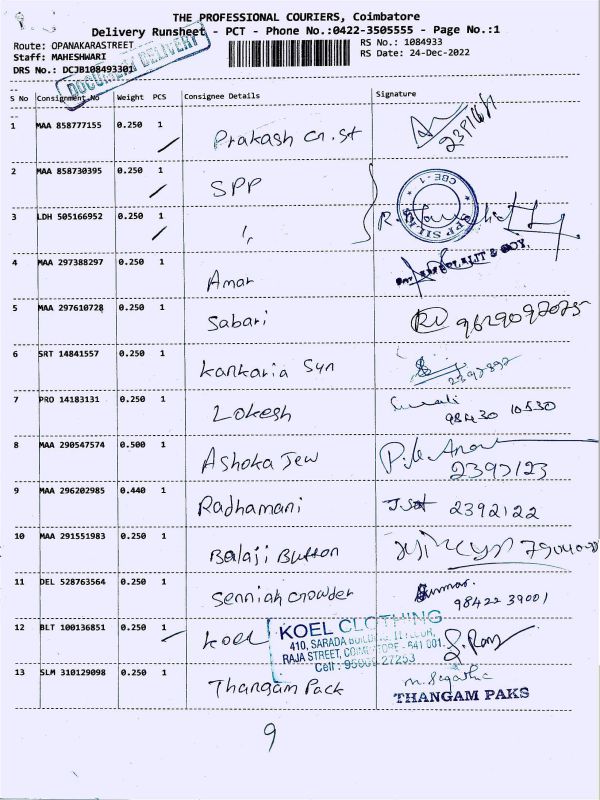 THE PROFESSIONAL COURIERS, Coimbatore
Delivery Runsheet - PCT - Phone No.:0422-3505555 - Page No.:1
Route: OPANAKARASTREET RS No.: 1084933
Staff: MAHESHWARI RS Date: 24-Dec-2022
DRS No.: DCJB108493301
DOCUMENT DELIVERY
S No Consignment No Weight PCS Consignee Details Signature
1 MAA 858777155 0.250 1 Prakash
2 MAA 858730395 0.250 1 SPP
CBE - 1
SPP SILKS
3 LDH 505166952 0.250 1 ''
4 MAA 297388297 0.250 1 Amar
5 MAA 297610728 0.250 1 Sabari 9629097075
6 SRT 14841557 0.250 1 Kankaria Syn
7 PRO 14183131 0.250 1 Lokesh 98430 10530
8 MAA 290547574 0.500 1 Ashoka Jew 2397123
9 MAA 296202985 0.440 1 Radhamani 2392122
10 MAA 291551983 0.250 1 Balaji Button
11 DEL 528763564 0.250 1 Senniah Crowder 98422 39001
12 BLT 100136851 0.250 1 Koel
KOEL CLOTHING
410, SARADA
RAJA STREET, COIMBATORE - 641 001.
Cell : 27253
13 SLM 310129098 0.250 1 Thangam Pack
THANGAM PAKS
9